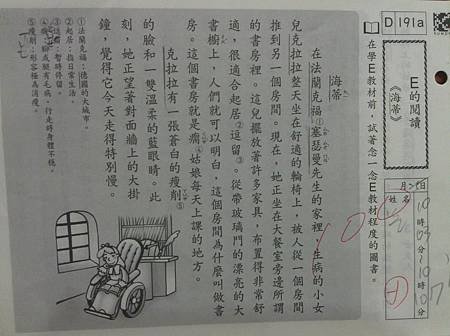 D191a
E的閱讀
《海蒂》
在學E教材前,試著念一念E教材程度的圖書。
月 日
姓名
10時03分~10
100
海蒂
在法蘭克福①塞瑟曼先生的家裡,生病的小女
兒克拉拉整天坐在舒適的輪椅上,被人從一個房間
推到另一個房間。現在,她正坐在大餐室旁邊所謂
的書房裡。這兒擺放著許多家具,布置得非常舒
適,很適合起居②逗留③。從帶玻璃門的漂亮的大
書櫥上,人們就可以明白,這個房間為什麼叫做書
房。這個書房就是瘸④姑娘每天上課的地方。
克拉拉有一張蒼白的瘦削⑤
的臉和一雙溫柔的藍眼睛。此
刻,她正望著對面牆上的大掛
鐘,覺得它今天走得特別慢。
①法蘭克福:德國的大城市。
②起居:指日常生活。
③逗留:暫時停留。
④瘸:腳或腿有毛病,行走時身體不穩。
⑤瘦削:形容極為消瘦。